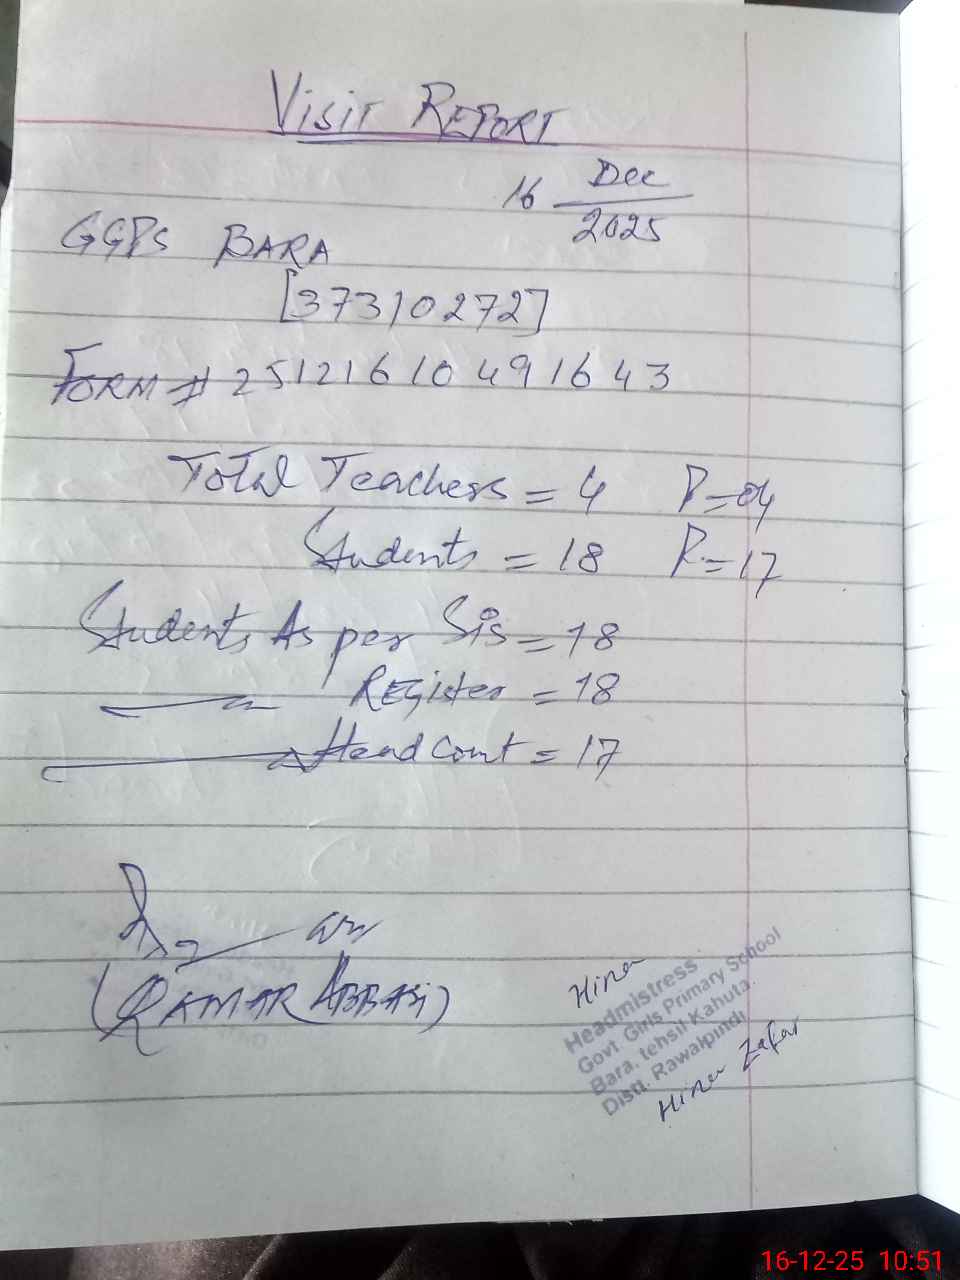 Visit REPORT
16 Dec
2025
GGPS BARA
[37310272]
FORM # 2512161049 1643
Total Teachers = 4 P=04
Students = 18 P=17
Students As per Sis = 18
Register = 18
Head Count = 17
(QAMAR ABBASi)
Hina
Headmistress
Govt. Girls Primary School
Bara, tehsil Kahuta.
Distt. Rawalpindi
Hina Zafar
16-12-25 10:51